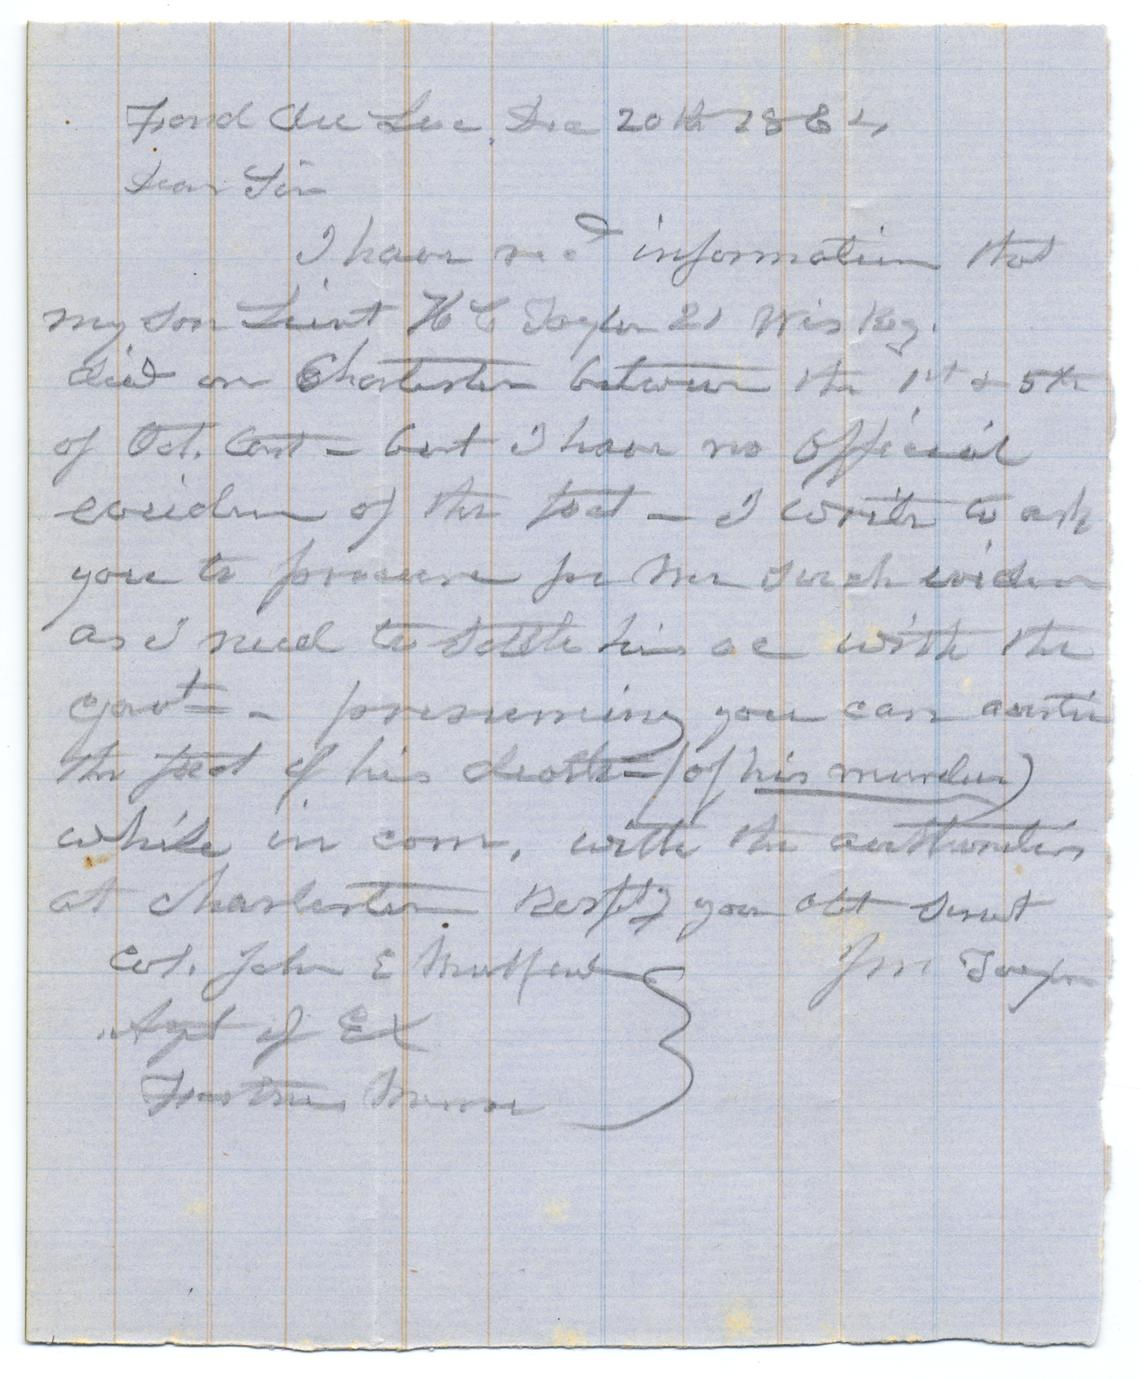 Fond Du Lac, Dec 20th 1864
Dear Sir
I have recd information that
my son Lieut H C Taylor 21 Wis Reg.
died on Charleston between the 1st & 5th
of Oct. - but I have no official
eviden of the fact - I write to ask
you to procure for me such eviden
as I need to settle his ac with the
Govt - presuming you can
the fact of his death - (of his murder)
while in com, with the authorities
at Charleston Respfly your obt Servt
Col. John E Mulford J M Taylor
Agt of EX
Fortress Monroe